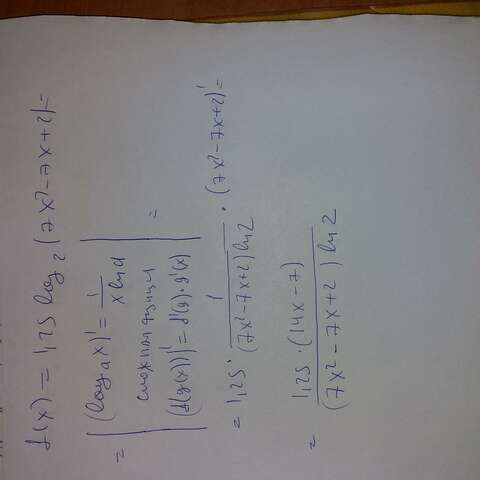 f(x) = 1,25 log₂ (7x²-7x+2)=
= | (logₐ x)' = 1/(x ln a)
сложная функция
(f(g(x)))' = f'(g)·g'(x) | =
= 1,25 · 1/((7x²-7x+2) ln 2) · (7x²-7x+2)' =
= 1,25·(14x-7)/((7x²-7x+2) ln 2)